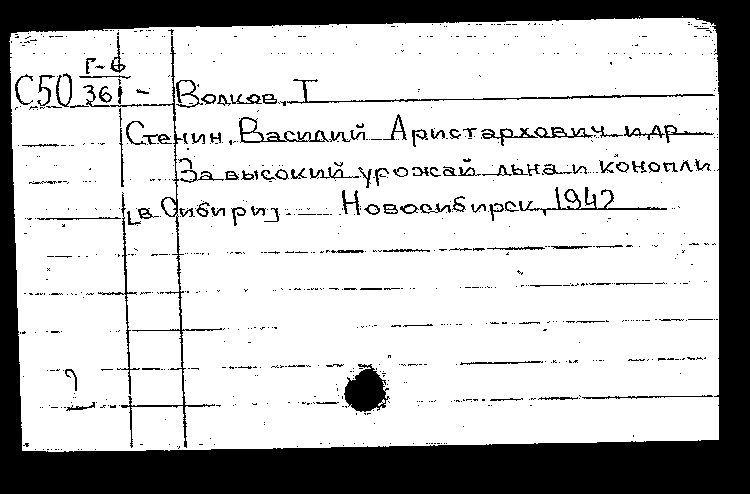 Г-6
С50 361 - Волков, Т
Стенин, Василий Аристархович и др.
За высокий урожай льна и конопли
[в Сибири]. Новосибирск, 1942
2